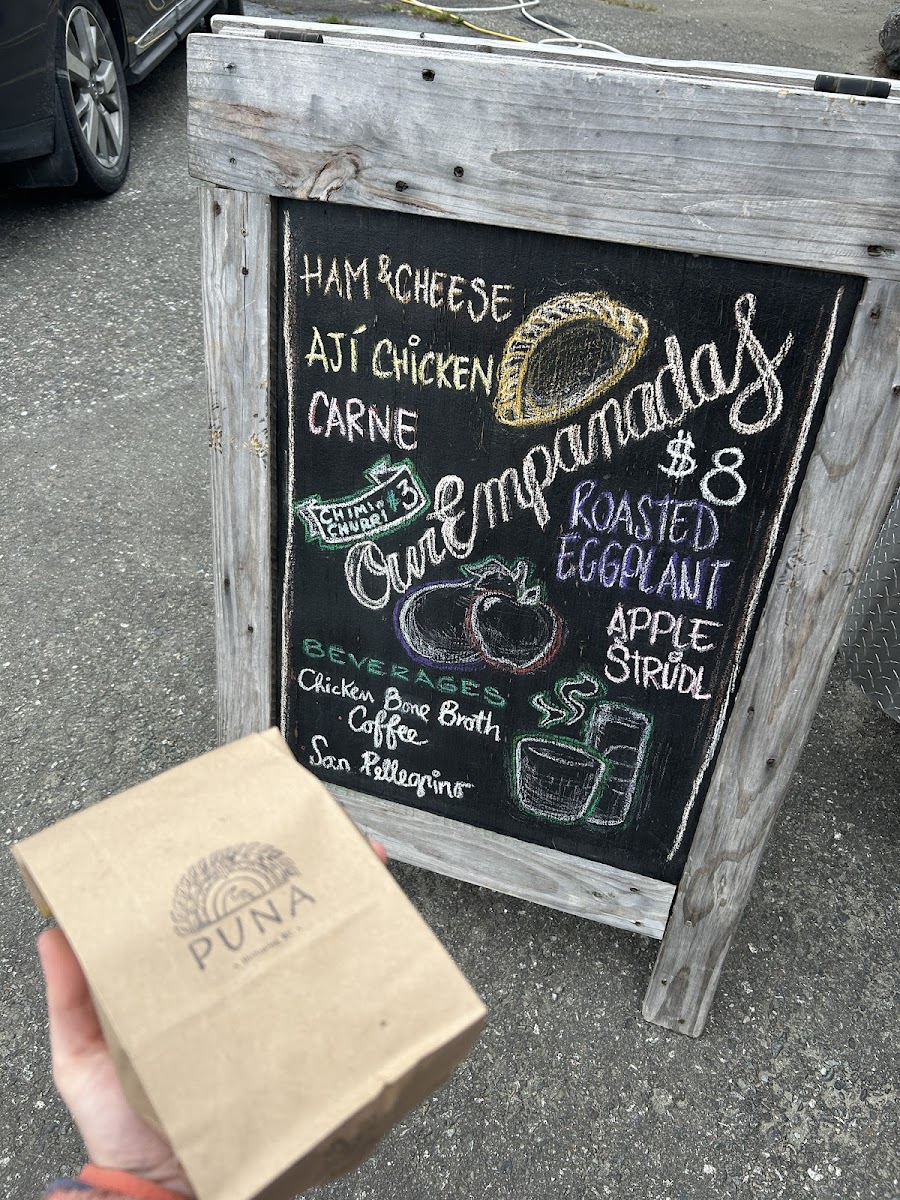 HAM & CHEESE
AJÍ CHICKEN
CARNE
CHIMI
CHURRI $3
Our Empanadas
$8
ROASTED
EGGPLANT
APPLE
STRÜDL
BEVERAGES
Chicken Bone Broth
Coffee
San Pellegrino
PUNA